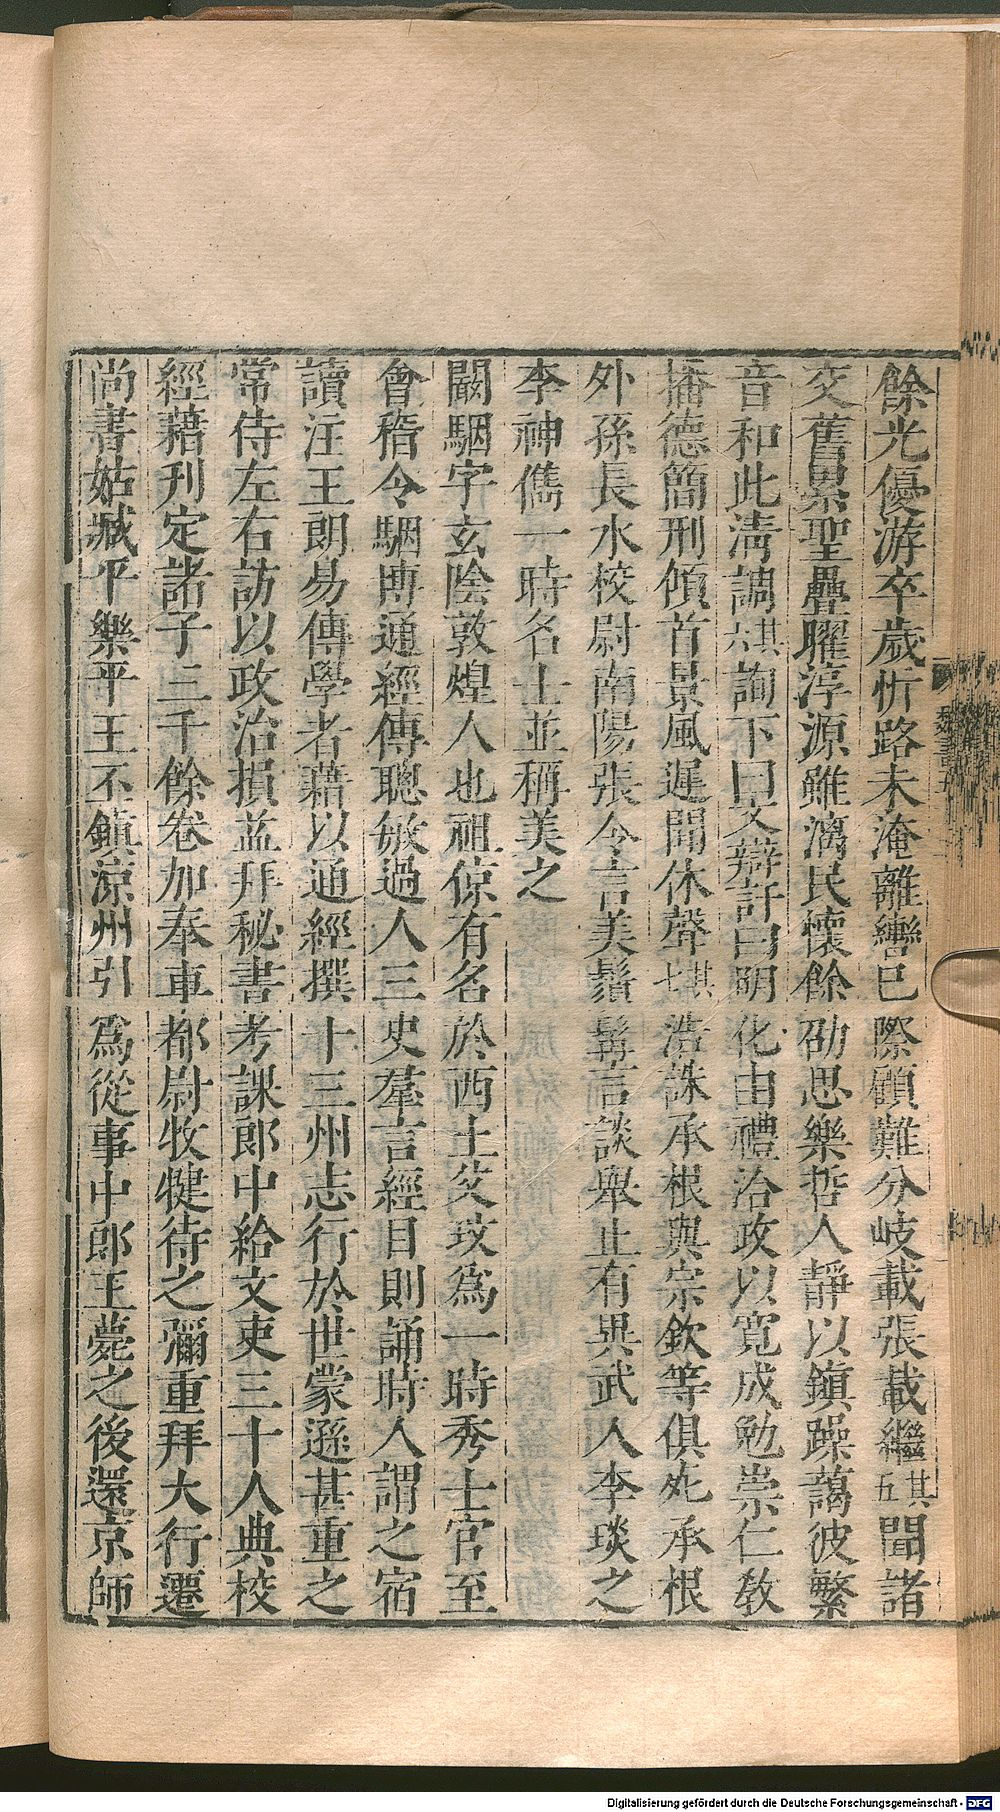 餘光優游卒歲忻路未淹離轡已際顧難分岐載張載繼其五聞諸
交舊累聖疊曜淳源雖漓民懷餘劭思樂哲人靜以鎮躁藹彼繁
音和此清調其六詢下曰文辯訐曰明化由禮洽政以寬成勉崇仁敎
播德簡刑傾首景風遲聞休聲其七浩誅承根與宗欽等俱死承根
外孫長水校尉南陽張令言美鬚髯言談舉止有異武人李琰之
李神儁一時名士並稱美之
闞駰字玄陰敦煌人也祖倞有名於西土父玟爲一時秀士官至
會稽令駰博通經傳聰敏過人三史羣言經目則誦時人謂之宿
讀注王朗易傳學者藉以通經撰十三州志行於世蒙遜甚重之
常侍左右訪以政治損益拜秘書考課郎中給文吏三十人典校
經藉刋定諸子三千餘卷加奉車都尉牧犍待之彌重拜大行遷
尚書姑臧平樂平王丕鎮涼州引爲從事中郎王薨之後還京師
魏書五
Digitalisierung gefördert durch die Deutsche Forschungsgemeinschaft - DFG